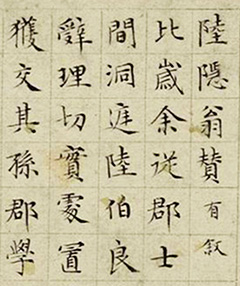 陸隱翁贊有敘
比歲余從郡士
間洞庭陸伯良
辭理切實處置
獲交其孫郡學